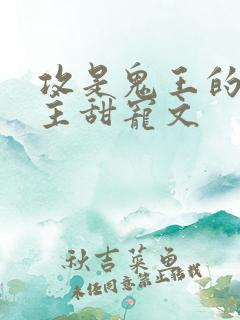 攻是鬼王的
主甜宠文
秋吉菜鱼
未经同意禁止转载